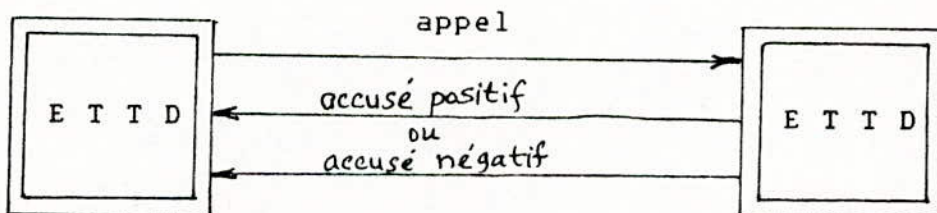 appel
E T T D
accusé positif
ou
accusé négatif
E T T D